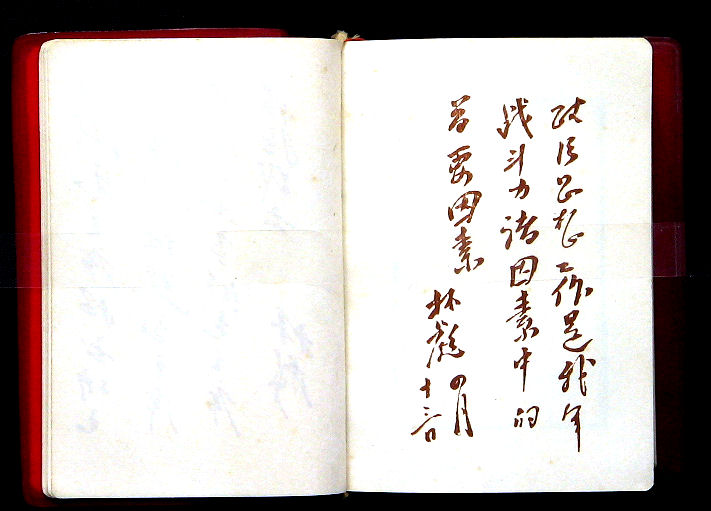 政治思想工作是我军
战斗力诸因素中的
首要因素
林彪
四月
十三日